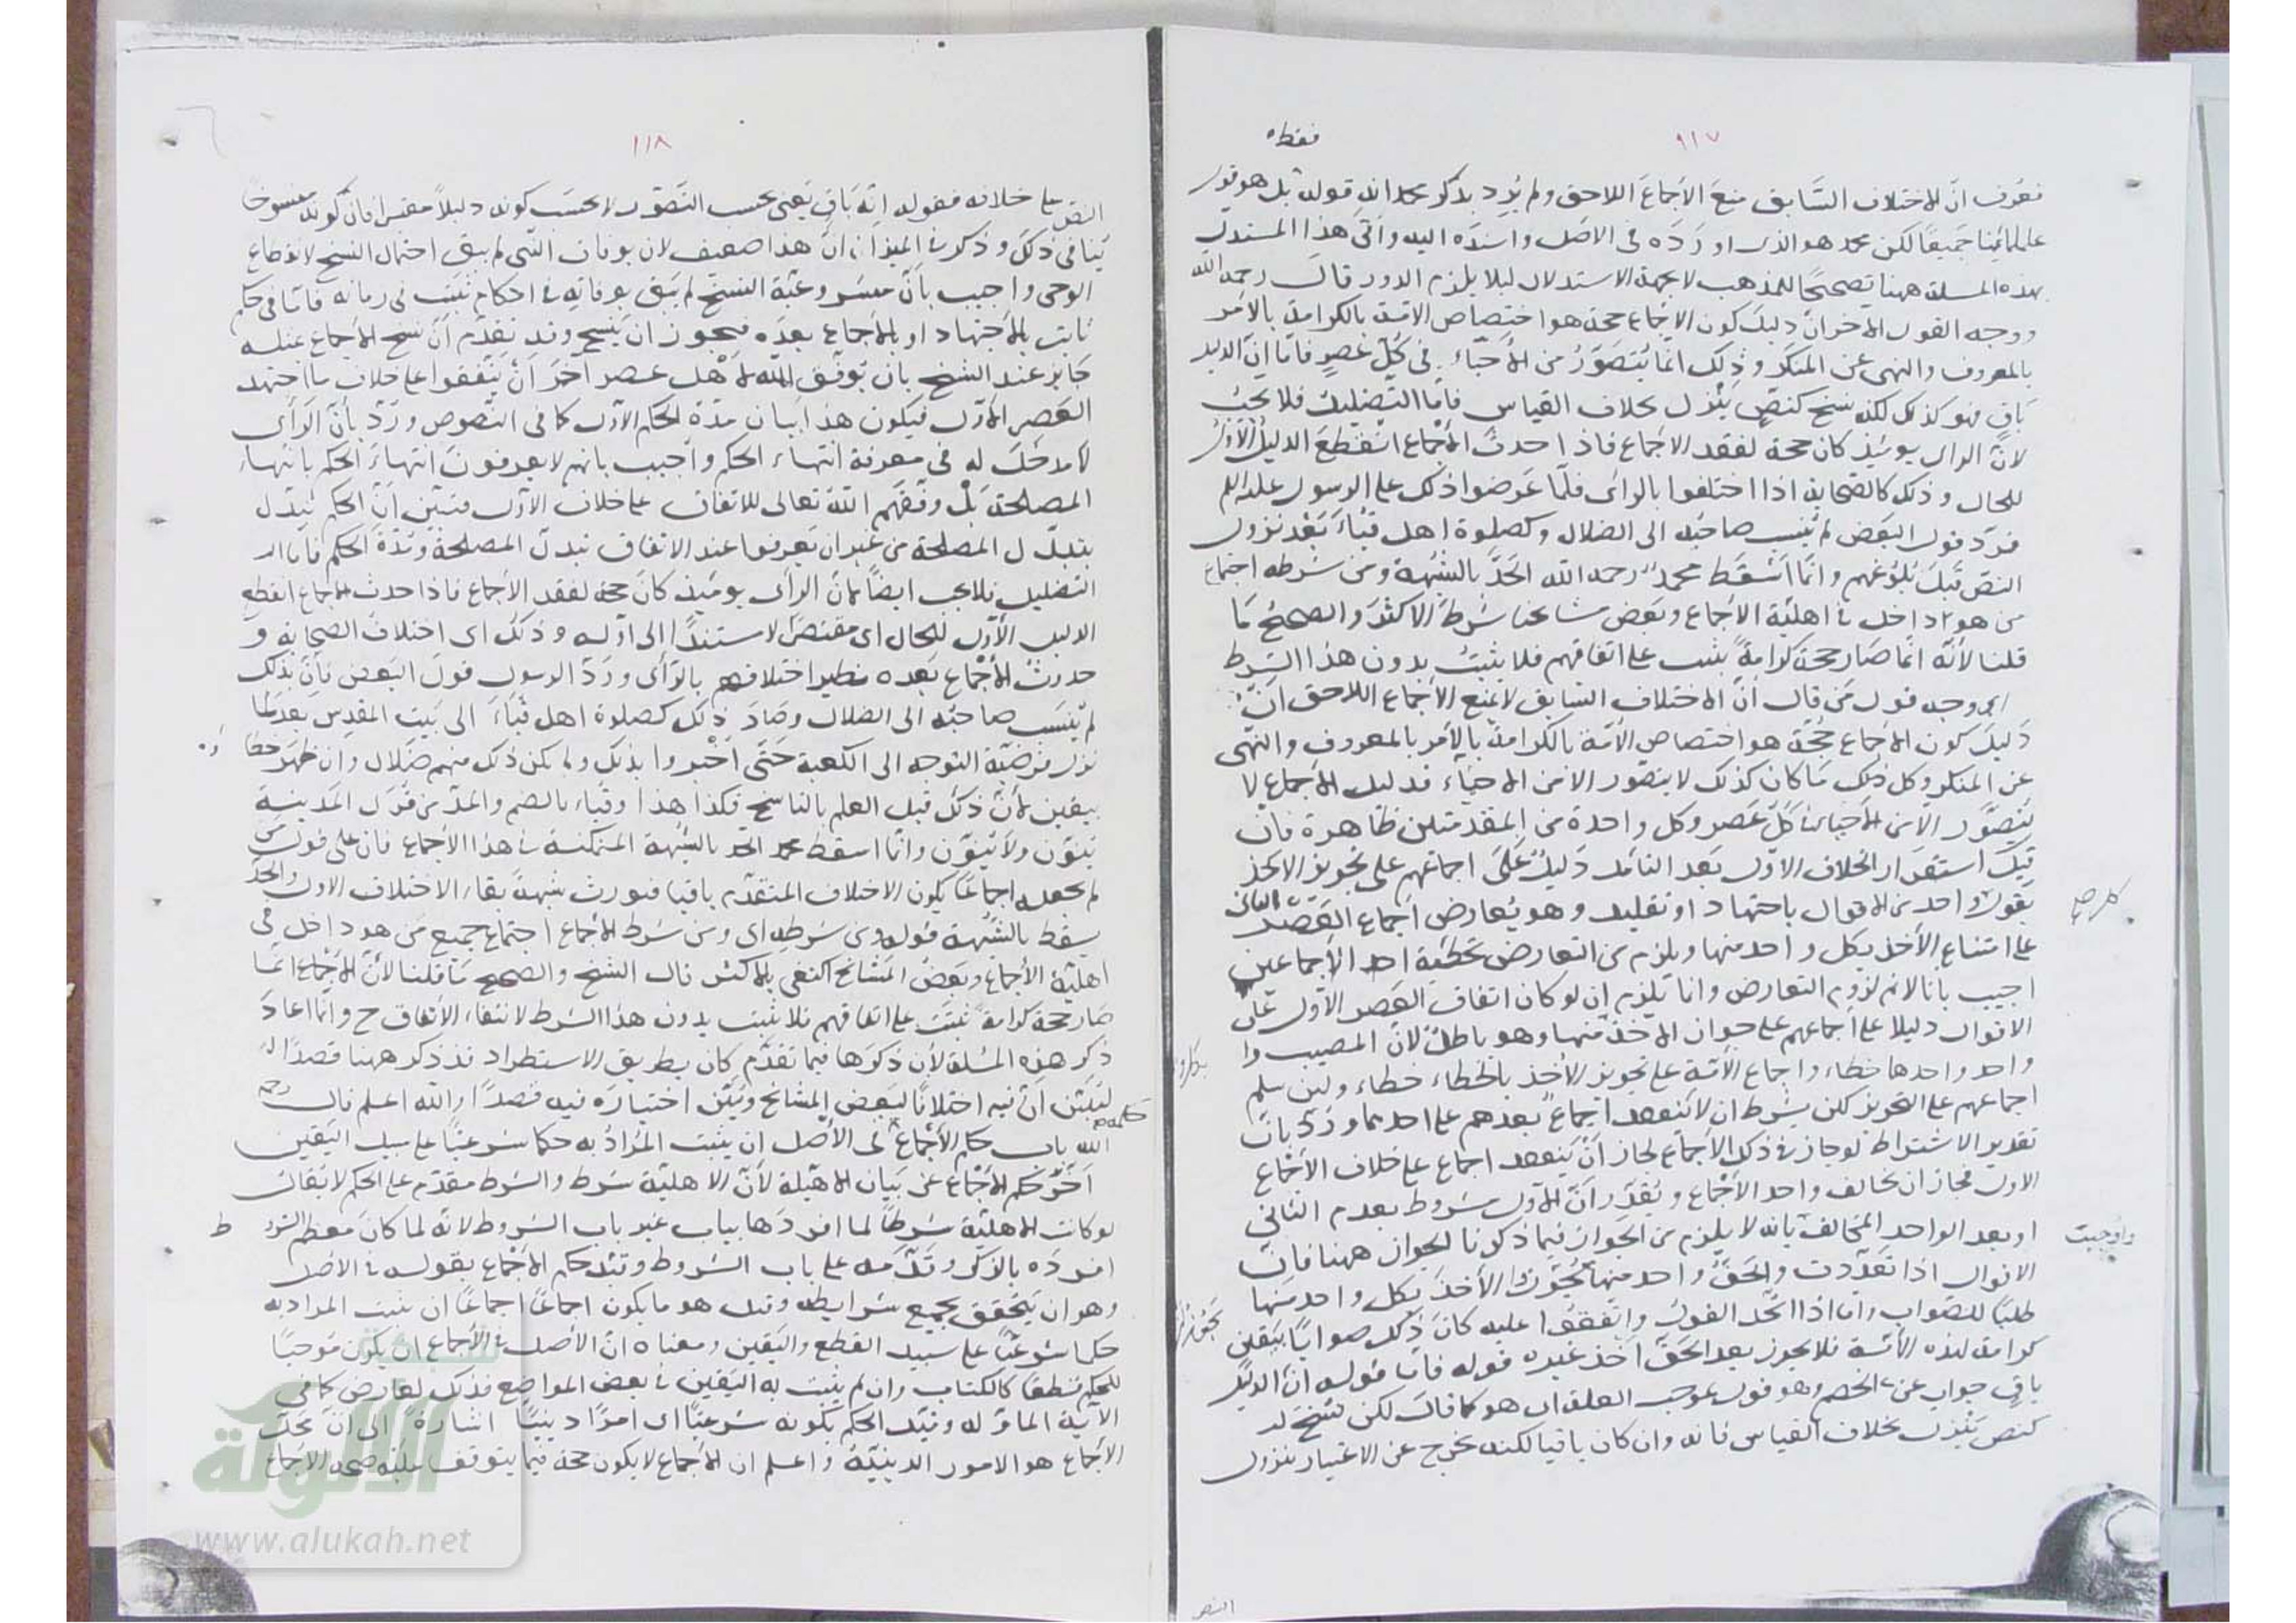 ٩١٧
فقط
فعرف ان الاختلاف السابق منع الاجماع اللاحق ولم يرد بذكر محمد انه قوله بل هو قول
علمائنا جميعا لكن محمد هو الذى اورده فى الاصل واسنده اليه واتى هذا المستدل
بهذه المسئلة ههنا تصحيحا للمذهب لا بجهة الاستدلال ليلا يلزم الدور قال رحمه الله
ووجه القول الآخر ان دليل كون الاجماع حجة هو اختصاص الامة بالكرامة بالامر
بالمعروف والنهى عن المنكر وذلك انما يتصور من الاحياء فى كل عصر فاما ان الدليل
باق فهو كذلك لكنه نسخ كنص ينزل بخلاف القياس فاما التضليل فلا يجب
لان الراى يومئذ كان حجة لفقد الاجماع فاذا حدث الاجماع انقطع الدليل الاول
للحال وذلك كالصحابة اذا اختلفوا بالراى فلما عرضوا ذلك على الرسول عليه السلم
فرد قول البعض لم ينسب صاحبه الى الضلال وكصلوة اهل قباء بعد نزول
النص قبل بلوغهم وانما اسقط محمد رحمه الله الحد بالشبهة ومن شرطه اجتماع
من هو داخل فى اهلية الاجماع وبعض مشايخنا شرط الاكثر والصحيح ما
قلنا لانه انما صار حجة كرامة يثبت على اتفاقهم فلا يثبت بدون هذا الشرط
اى وجه قول من قال ان الاختلاف السابق لا يمنع الاجماع اللاحق ان
دليل كون الاجماع حجة هو اختصاص الامة بالكرامة بالامر بالمعروف والنهى
عن المنكر وكل ذلك ما كان كذلك لا يتصور الا من الاحياء فدليل الاجماع لا
يتصور الا من الاحياء فى كل عصر وكل واحدة من المقدمتين ظاهرة فان
قيل استقرار الخلاف الاول بعد التامل دليل على اجماعهم على تجويز الاخذ
بقول واحد من الاقوال باجتهاد او تقليد وهو يعارض اجماع العصر الثانى
على امتناع الاخذ بكل واحد منها ويلزم من التعارض تخطئة احد الاجماعين
اجيب بانا لا نم لزوم التعارض وانما يلزم ان لو كان اتفاق العصر الاول على
الاقوال دليلا على اجماعهم على جواز الاخذ منها وهو باطل لان المصيب وا
واحد واحدها خطاء واجماع الامة على تجويز الاخذ بالخطاء خطاء ولين سلم
اجماعهم على التجويز لكن بشرط ان لا ينعقد اجماع بعدهم على احدهما ورد بان
تقدير الاشتراط لو جاز فى ذلك الاجماع لجاز ان ينعقد اجماع على خلاف الاجماع
الاول فجاز ان يخالف واحد الاجماع ويقدر ان الاول مشروط بعدم الثانى
او بعد الواحد المخالف بانه لا يلزم من الجواز فيما ذكرنا الجواز ههنا فان
واجيب
الاقوال اذا تعددت والحق واحد منها يجوز الاخذ بكل واحد منها
طلبا للصواب واما اذا اتحد القول واتفقوا عليه كان ذلك صوابا بيقين
كرامة لهذه الامة فلا يجوز بعد الحق اخذ غيره قوله فاما قوله ان الدليل
باق جواب عن الخصم وهو قول بموجب العلة اى هو كما قال لكن نسخ له
كنص ينزل بخلاف القياس فانه وان كان باقيا لكنه يخرج عن الاعتبار بنزول
النص
١١٨
النص على خلافه فقوله انه باق يعنى بحسب التصور لا بحسب كونه دليلا معتبرا فان كونه منسوخا
ينافى ذلك وذكر فى الميزان ان هذا ضعيف لان بوفات النبى لم يبق احتمال النسخ لانقطاع
الوحى واجيب بان مشروعية النسخ لم يبق بوفاته فى احكام ثبتت فى زمانه فاما فى حكم
ثابت بالاجتهاد او بالاجماع بعده فيجوز ان ينسخ وقد تقدم ان نسخ الاجماع بمثله
جايز عند الشيخ بان يوفق الله لاهل عصر آخر ان يتفقوا على خلاف ما اجتهد
العصر الاول فيكون هذا بيان مدة الحكم الاول كما فى النصوص ورد بان الراى
لا مدخل له فى معرفة انتهاء الحكم واجيب بانهم لا يعرفون انتهاء الحكم بانتهاء
المصلحة بل وفقهم الله تعالى للاتفاق على خلاف الاول فتبين ان الحكم تبدل
بتبدل المصلحة من غير ان يعرفوا عند الاتفاق تبدل المصلحة ومدة الحكم فاما
التضليل فلا يجب ايضا لان الراى يومئذ كان حجة لفقد الاجماع فاذا حدث الاجماع انقطع
الدليل الاول للحال اى مقتصرا لا مستندا الى اوله وذلك اى اختلاف الصحابة و
حدوث الاجماع بعده نظير اختلافهم بالراى ورد الرسول قول البعض فان بذلك
لم ينسب صاحبه الى الضلال وصار ذلك كصلوة اهل قباء الى بيت المقدس بعد ما
نزل فرضية التوجه الى الكعبة حتى اخبروا بذلك ولم يكن ذلك منهم ضلال وان ظهر خطا
بيقين لان ذلك قبل العلم بالناسخ فكذا هذا وقباء بالضم والمد من قرى المدينة
ينون ولا ينون وانما اسقط محمد الحد بالشبهة المتمكنة فى هذا الاجماع فان على قول من
لم يجعله اجماعا يكون الاختلاف المتقدم باقيا فيورث شبهة بقاء الاختلاف الاول والحد
يسقط بالشبهة قوله ومن شرطه اى ومن شرط الاجماع اجتماع جميع من هو داخل فى
اهلية الاجماع وبعض المشائخ اكتفى بالاكثر قال الشيخ والصحيح ما قلنا لان الاجماع انما
صار حجة كرامة تثبت على اتفاقهم فلا يثبت بدون هذا الشرط لانتفاء الاتفاق ح وانما اعاد
ذكر هذه المسئلة لان ذكرها فيما تقدم كان بطريق الاستطراد فذكر ههنا قصدا
ليبين ان فيه اختلافا لبعض المشائخ وبين اختياره فيه قصدا والله اعلم قال رحمه
الله باب حكم الاجماع حكمه فى الاصل ان يثبت المراد به حكما شرعيا على سبيل اليقين
اخر حكم الاجماع عن بيان الاهلية لان الاهلية شرط والشرط مقدم على الحكم لا يقال
لو كانت الاهلية شرطا لما افردها بباب غير باب الشروط لانه لما كان معظم الشرو ط
افرده بالذكر وقدمه على باب الشروط وقيد حكم الاجماع بقوله فى الاصل
وهو ان يتحقق بجميع شرايطه وقيل هو ما يكون اجماعا اجماعا ان يثبت المراد به
حكما شرعيا على سبيل القطع واليقين ومعناه ان الاصل فى الاجماع ان يكون موجبا
للحكم قطعا كالكتاب وان لم يثبت به اليقين فى بعض المواضع فذلك لعارض كما فى
الآية الماؤلة وقيد الحكم بكونه شرعيا اى امرا دينيا اشارة الى ان محل
الاجماع هو الامور الدينية واعلم ان الاجماع لا يكون حجة فيما يتوقف عليه صحة الاجماع
الألوكة
www.alukah.net